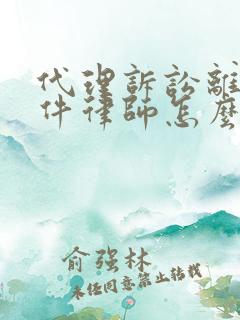 代理訴訟離
件律師怎麼
俞强林
未经同意禁止转载